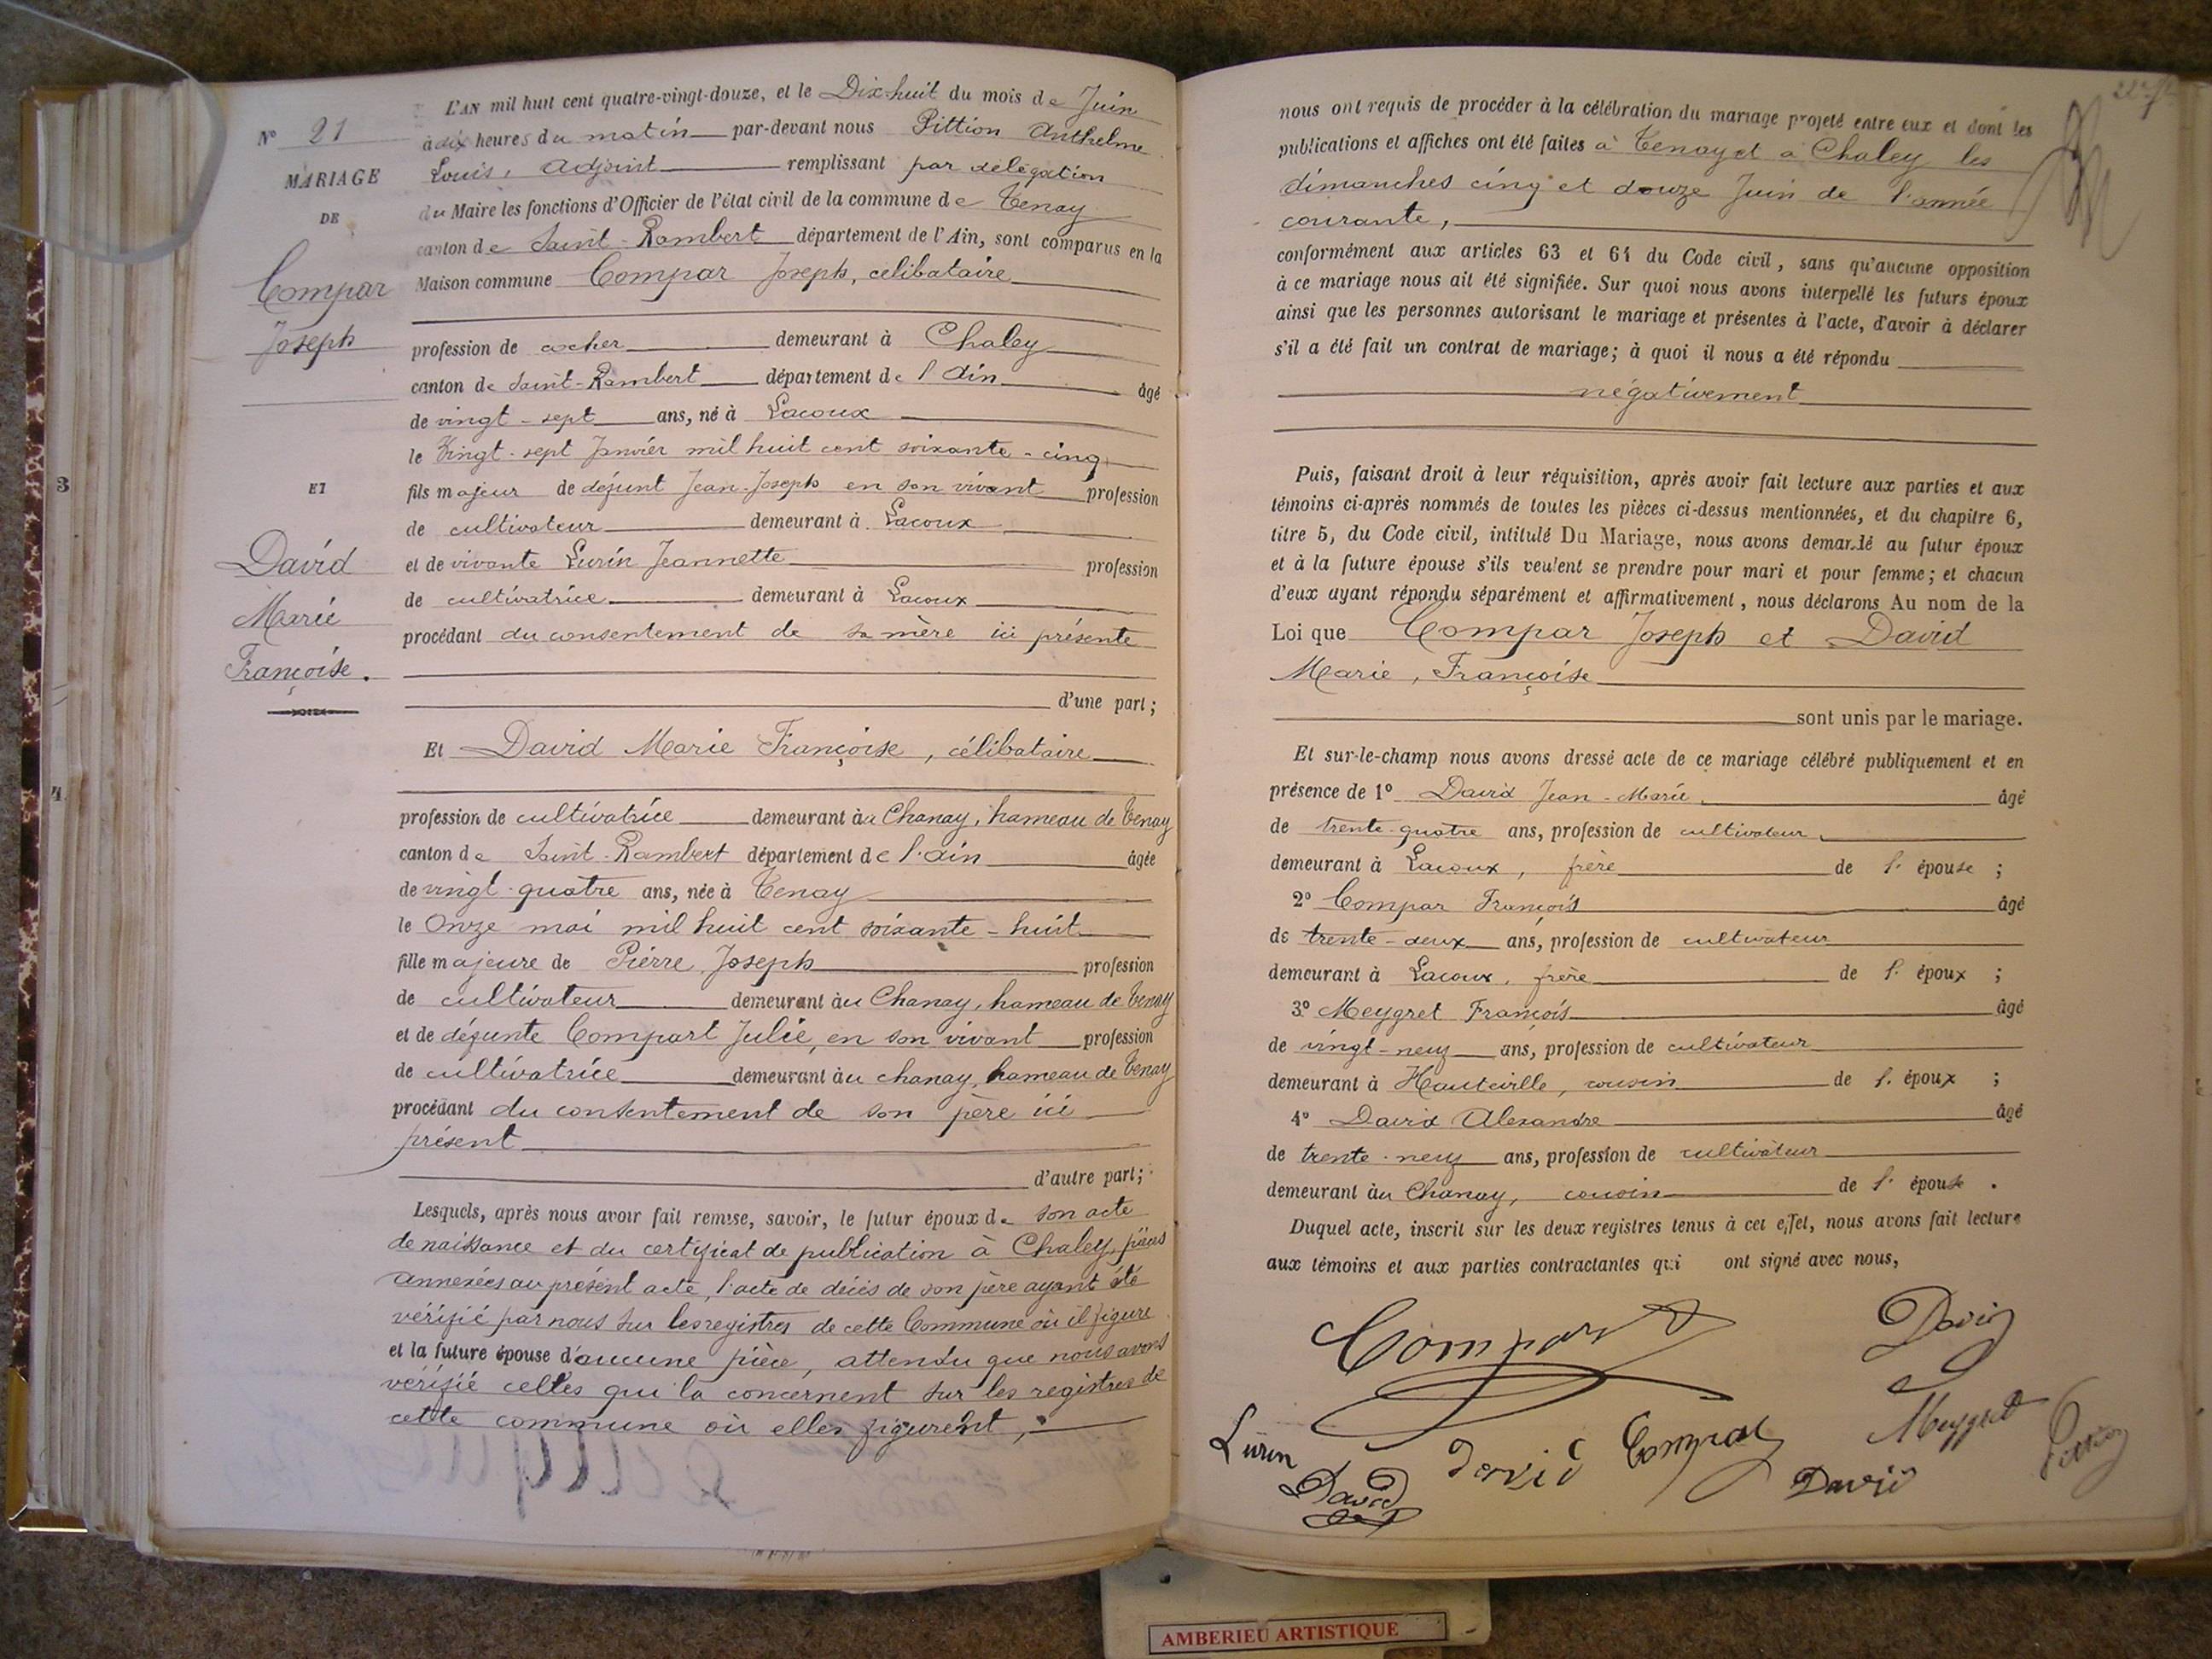 N° 21
MARIAGE
DE
Compar
Joseph
ET
David
Marie
Françoise.
L'AN mil huit cent quatre-vingt-douze, et le Dix-huit du mois de Juin
à dix heures du matin par-devant nous Pittion Anthelme
Louis, adjoint remplissant par délégation
du Maire les fonctions d'Officier de l'état civil de la commune de Tenay
canton de Saint-Rambert département de l'Ain, sont comparus en la
Maison commune Compar Joseph, célibataire
profession de cocher demeurant à Chaley
canton de Saint-Rambert département de l'Ain âgé
de vingt-sept ans, né à Lacoux
le Vingt-sept Janvier mil huit cent soixante-cinq
fils majeur de défunt Jean-Joseph en son vivant profession
de cultivateur demeurant à Lacoux
et de vivante Lurin Jeannette profession
de cultivatrice demeurant à Lacoux
procédant du consentement de sa mère ici présente
d'une part;
Et David Marie Françoise, célibataire
profession de cultivatrice demeurant àu Chanay, hameau de Tenay
canton de Saint-Rambert département de l'ain âgée
de vingt-quatre ans, née à Tenay
le Onze mai mil huit cent soixante-huit
fille majeure de Pierre Joseph profession
de cultivateur demeurant àu Chanay, hameau de Tenay
et de défunte Compart Julie, en son vivant profession
de cultivatrice demeurant àu chanay, hameau de Tenay
procédant du consentement de son père ici
présent
d'autre part;
Lesquels, après nous avoir fait remise, savoir, le futur époux de son acte
de naissance et du certificat de publication à Chaley, pièces
annexées au présent acte, l'acte de décès de son père ayant été
vérifié par nous sur les registres de cette Commune où il figure
et la future épouse d'aucune pièce, attendu que nous avons
vérifié celles qui la concernent sur les registres de
cette commune où elles figurent,
nous ont requis de procéder à la célébration du mariage projeté entre eux et dont les
publications et affiches ont été faites à Tenay et à Chaley les
dimanches cinq et douze Juin de l'année
courante,
conformément aux articles 63 et 64 du Code civil, sans qu'aucune opposition
à ce mariage nous ait été signifiée. Sur quoi nous avons interpellé les futurs époux
ainsi que les personnes autorisant le mariage et présentes à l'acte, d'avoir à déclarer
s'il a été fait un contrat de mariage; à quoi il nous a été répondu
négativement
Puis, faisant droit à leur réquisition, après avoir fait lecture aux parties et aux
témoins ci-après nommés de toutes les pièces ci-dessus mentionnées, et du chapitre 6,
titre 5, du Code civil, intitulé Du Mariage, nous avons demandé au futur époux
et à la future épouse s'ils veulent se prendre pour mari et pour femme; et chacun
d'eux ayant répondu séparément et affirmativement, nous déclarons Au nom de la
Loi que Compar Joseph et David
Marie, Françoise
sont unis par le mariage.
Et sur-le-champ nous avons dressé acte de ce mariage célébré publiquement et en
présence de 1° David Jean-Marie, âgé
de trente-quatre ans, profession de cultivateur
demeurant à Lacoux, frère de l'épouse ;
2° Compar François âgé
de trente-deux ans, profession de cultivateur
demeurant à Lacoux, frère de l'époux ;
3° Meygret François âgé
de vingt-neuf ans, profession de cultivateur
demeurant à Hauteville, cousin de l'époux ;
4° David Alexandre âgé
de trente-neuf ans, profession de cultivateur
demeurant àu Chanay, cousin de l'épouse.
Duquel acte, inscrit sur les deux registres tenus à cet effet, nous avons fait lecture
aux témoins et aux parties contractantes qui ont signé avec nous,
Compar David
Lurin David Compar Meygret Pittion
David David
3
4
AMBERIEU ARTISTIQUE